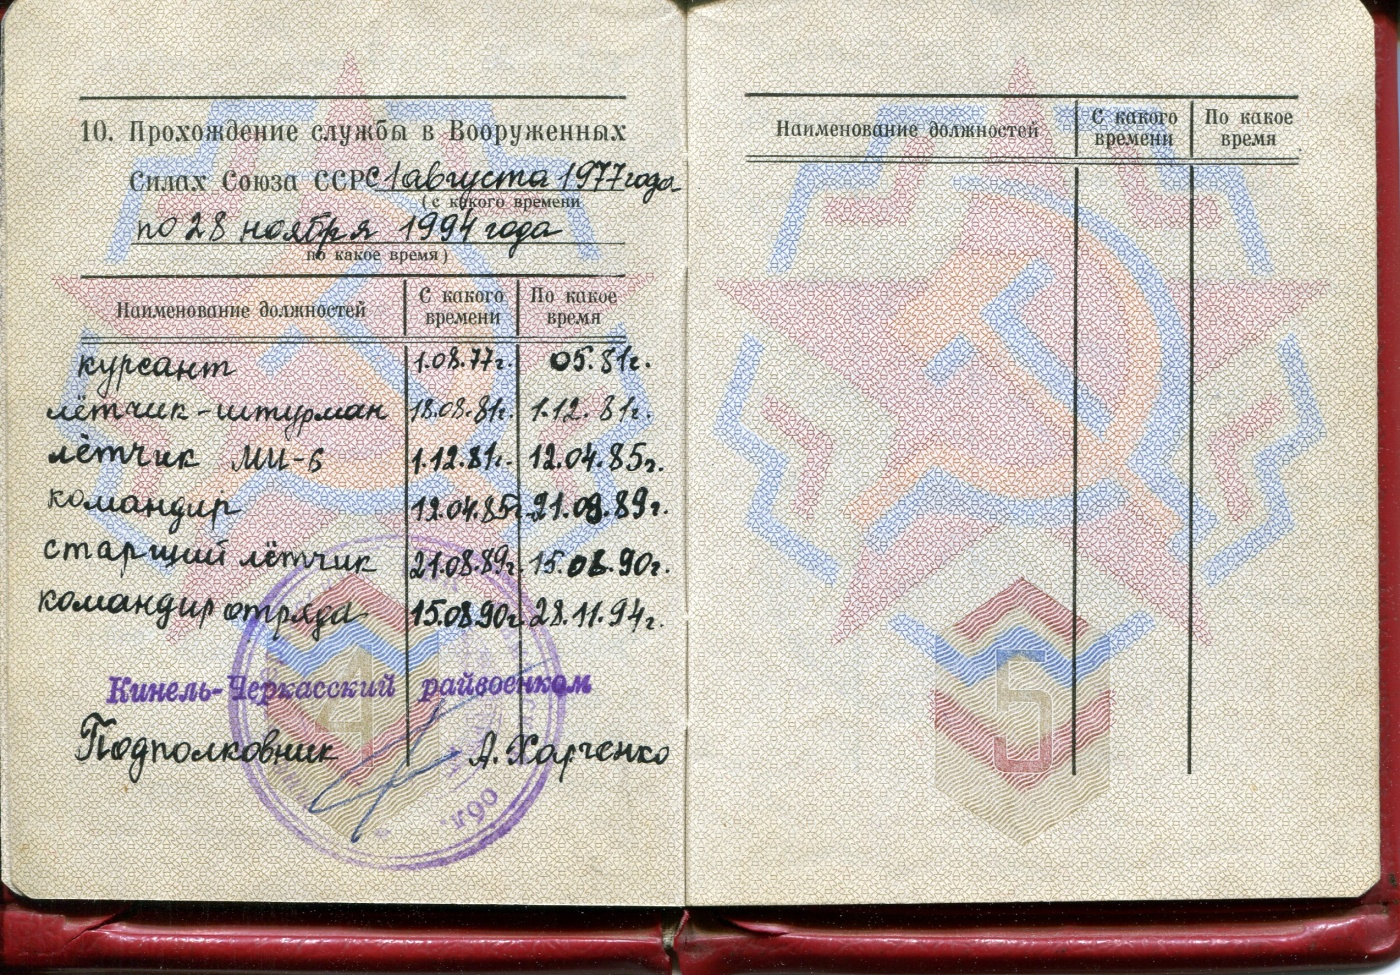 10. Прохождение службы в Вооруженных
Силах Союза ССР с 1 августа 1977 года
(с какого времени
по 28 ноября 1994 года
по какое время)
Наименование должностей С какого времени По какое время
курсант 1.08.77г. 05.81г.
лётчик-штурман 18.08.81г. 1.12.81г.
лётчик МИ-6 1.12.81г. 12.04.85г.
командир 12.04.85г. 21.08.89г.
старший лётчик 21.08.89г. 15.08.90г.
командир отряда 15.08.90г. 28.11.94г.
Кинель-Черкасский райвоенком
Подполковник А. Харченко
обл.
4
Наименование должностей С какого времени По какое время
5